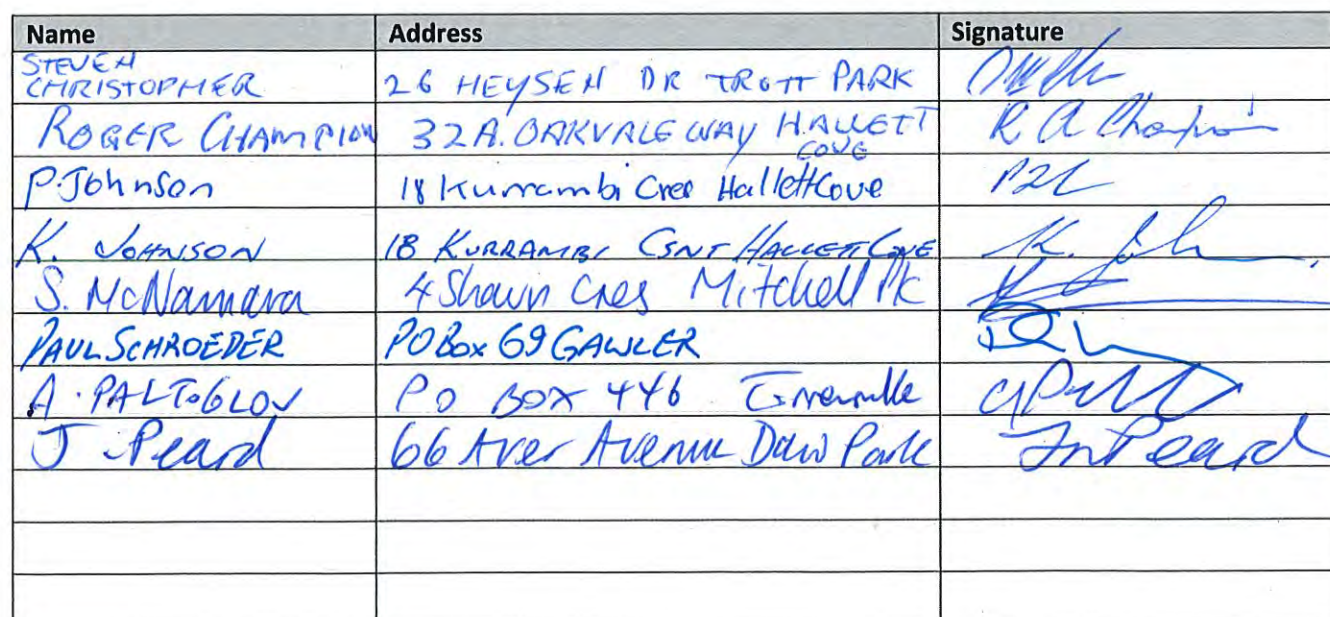 Name Address Signature
STEVEN
CHRISTOPHER 26 HEYSEN DR TROTT PARK
ROGER CHAMPION 32A. OAKVALE WAY HALLETT R A Champion
COVE
P. Johnson 18 Kurrambi Cres Hallett Cove
K. JOHNSON 18 KURRAMBI CSNT HALLETT COVE K. Joh
S. McNamara 4 Shawn Cres Mitchell Pk
PAUL SCHROEDER PO Box 69 GAWLER
A. PALTOGLOU PO BOX 446
J Peard 66 Ayer Avenue Daw Park Peard